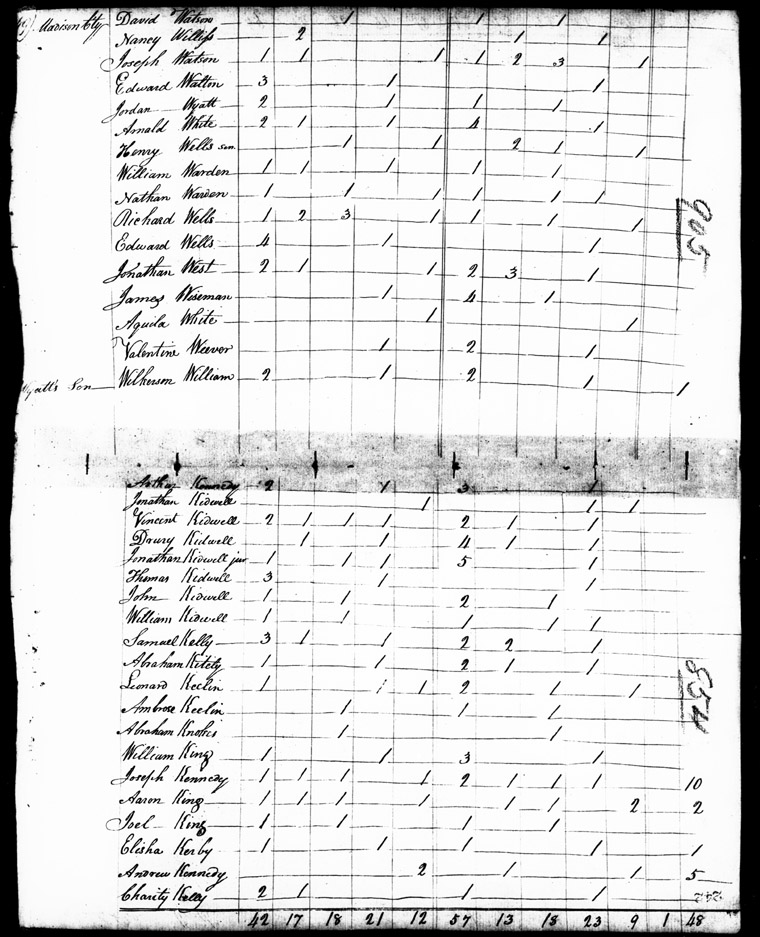 Madison Cty David Watson 1 1 1
Nancy Williss 2 1 1
Joseph Watson 1 1 1 1 2 3 1
Edward Walton 3 1 1
Jordan Wyatt 2 1 1 1
Arnald White 2 1 1 4 1
Henry Wells sen 1 1 2 1 1
William Warden 1 1 1 1 1
Nathan Warden 1 1 1 1 1 1
Richard Wells 1 2 3 1 1 1 1
Edward Wells 4 1 1
Jonathan West 2 1 1 2 3 1
James Wiseman 1 4 1
Aquila White 1 1
Valentine Weevor 1 2 1
Wyatt's Son Wilkerson William 2 1 2 1 1
905
Arthur Kennedy 2 1 3 1
Jonathan Kidwell 1 1 1
Vincent Kidwell 2 1 1 1 2 1 1
Drury Kidwell 1 1 4 1 1
Jonathan Kidwell jur 1 1 1 5 1
Thomas Kidwell 3 1 1
John Kidwell 1 1 2 1
William Kidwell 1 1 1 1 1
Samuel Kelly 3 1 1 2 2 1
Abraham Kitety 1 1 2 1 1
Leonard Keelin 1 1 1 2 1 1
Ambrose Keelin 1 1 1
Abraham Knokis 1 1
William King 1 1 3 1
Joseph Kennedy 1 1 1 1 2 1 1 1 10
Aaron King 1 1 1 1 1 1 2 2
Joel King 1 1 1 1
Elisha Kerby 1 1 1 1 1
Andrew Kennedy 2 1 1 5
Charity Kelly 2 1 1 1
42 17 18 21 12 57 13 18 23 9 1 48